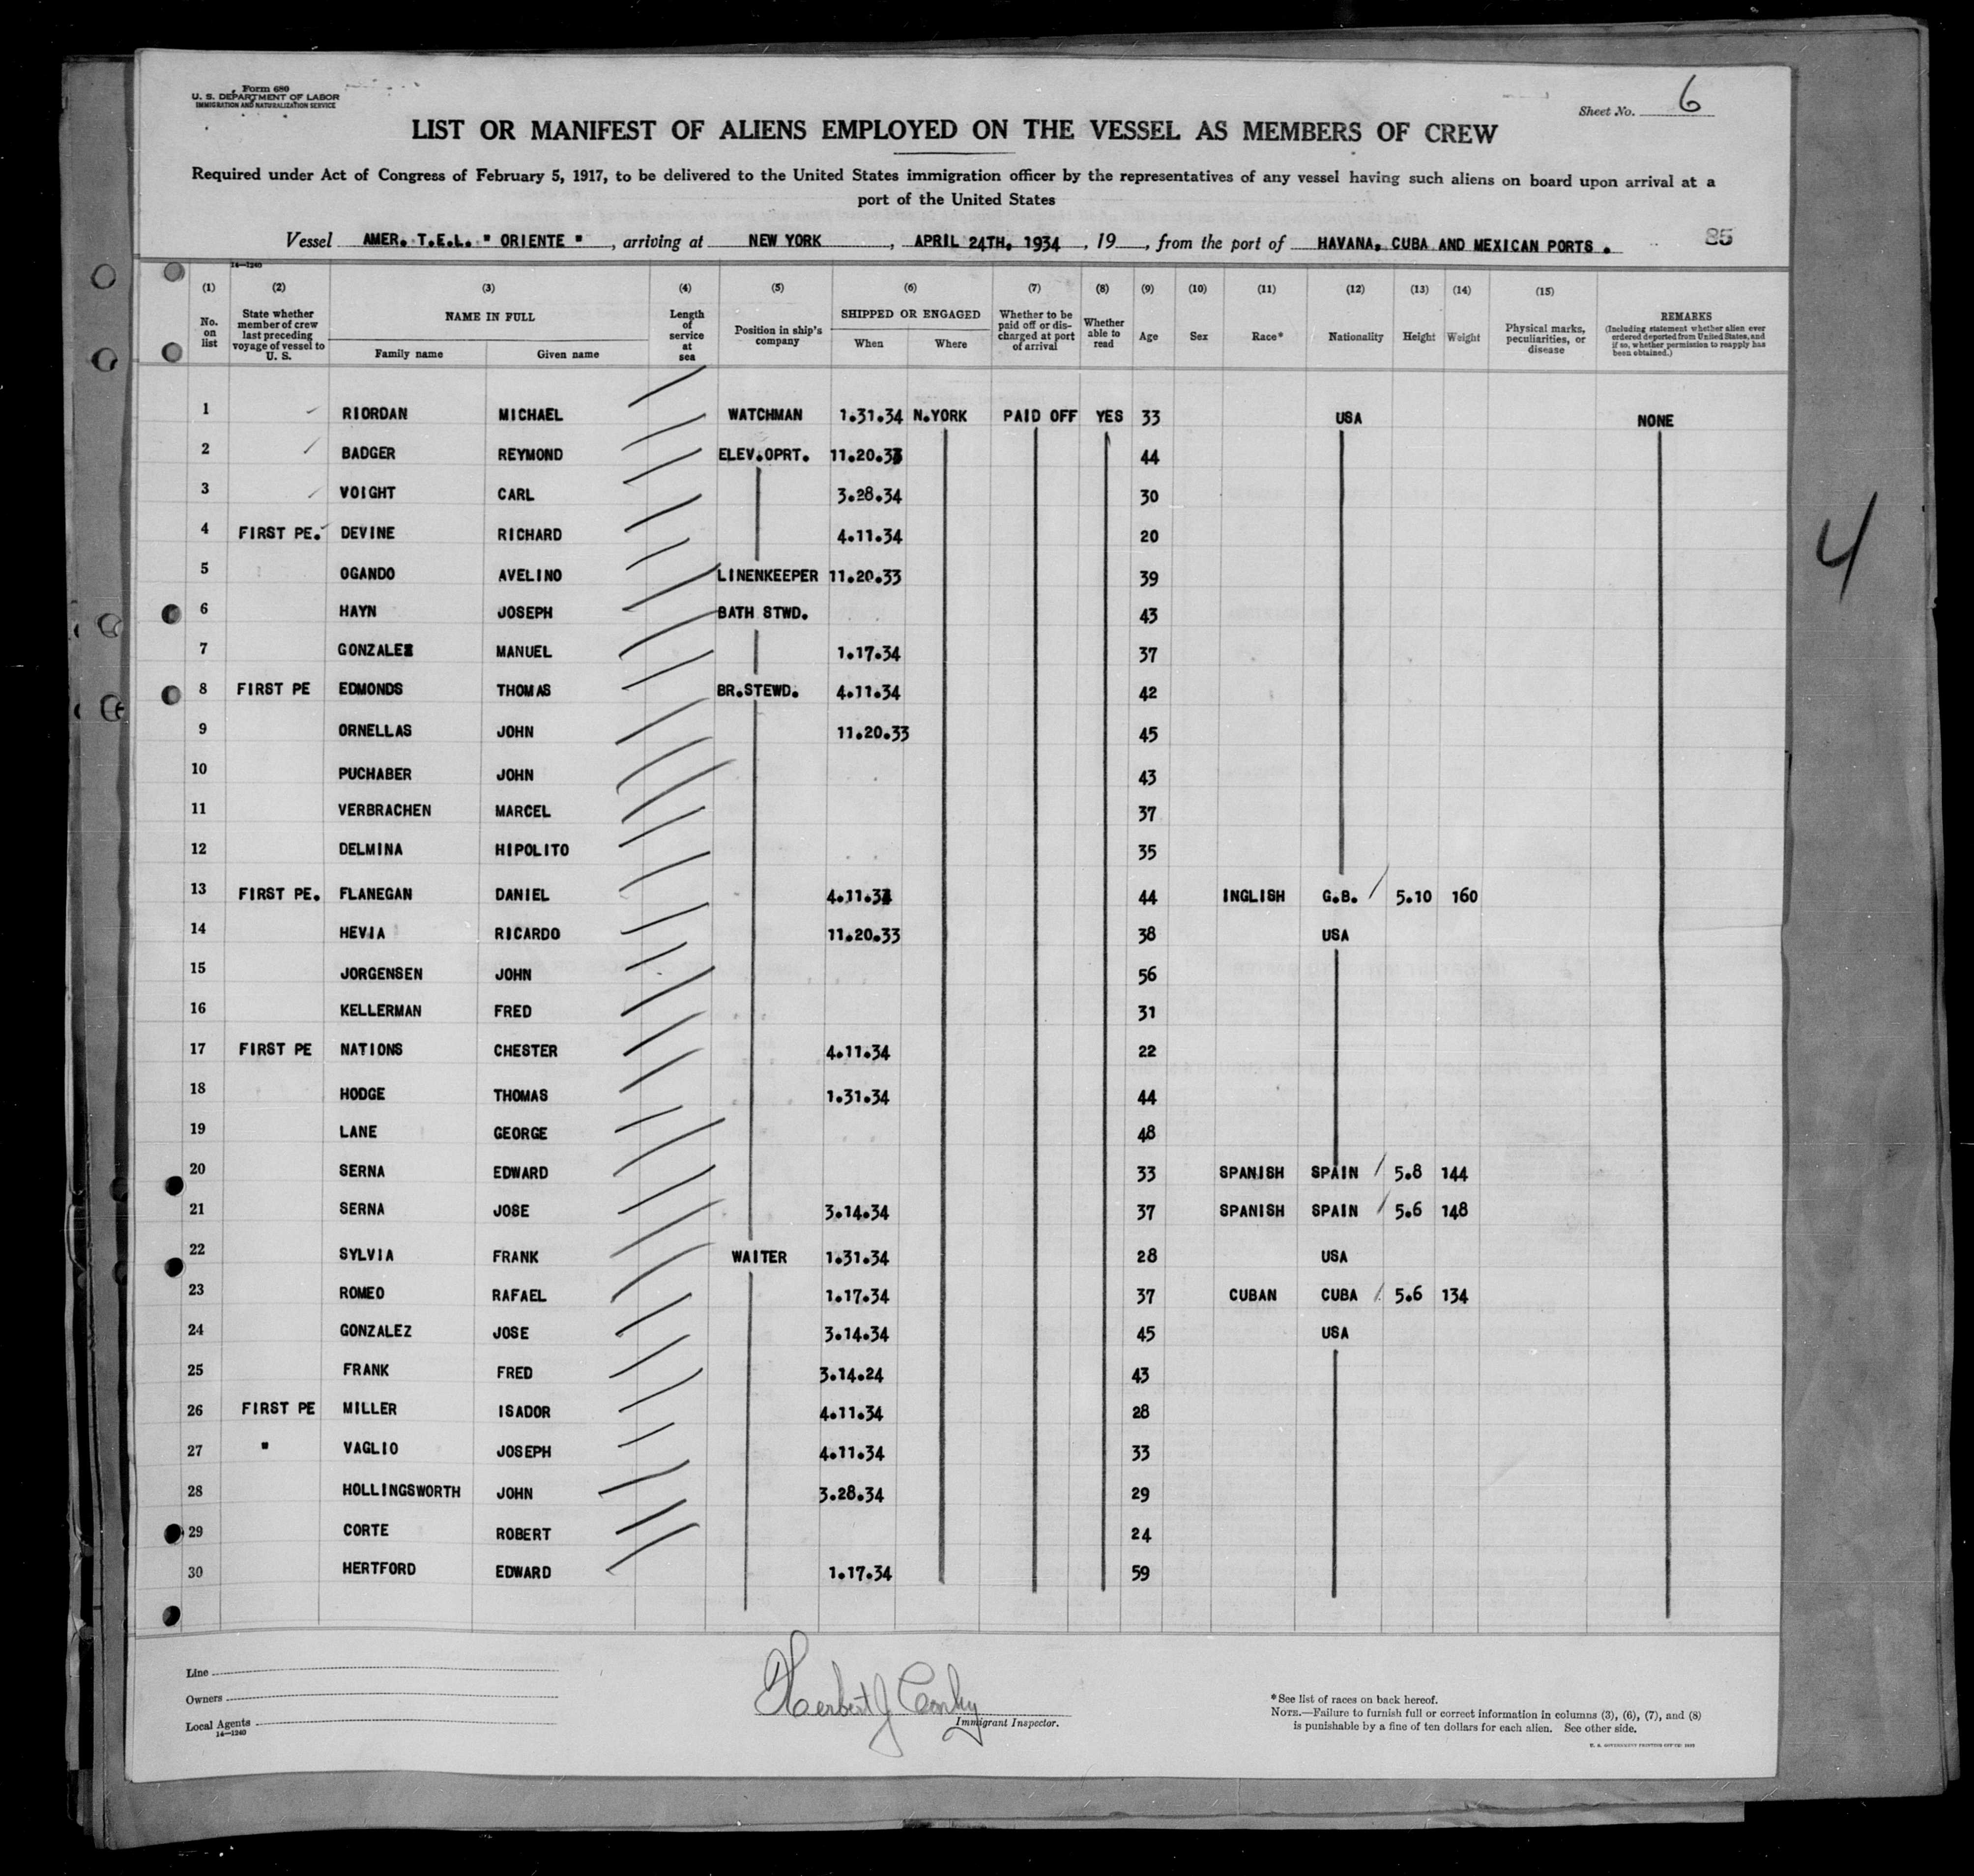 Form 680
U. S. DEPARTMENT OF LABOR
IMMIGRATION AND NATURALIZATION SERVICE
Sheet No. 6
LIST OR MANIFEST OF ALIENS EMPLOYED ON THE VESSEL AS MEMBERS OF CREW
Required under Act of Congress of February 5, 1917, to be delivered to the United States immigration officer by the representatives of any vessel having such aliens on board upon arrival at a
port of the United States
Vessel AMER. T.E.L. " ORIENTE " , arriving at NEW YORK , APRIL 24TH. 1934 , 19 , from the port of HAVANA, CUBA AND MEXICAN PORTS . 85
14—1240
(1) (2) (3) (4) (5) (6) (7) (8) (9) (10) (11) (12) (13) (14) (15)
No. on list
State whether member of crew last preceding voyage of vessel to U. S.
NAME IN FULL
Family name Given name
Length of service at sea
Position in ship's company
SHIPPED OR ENGAGED
When Where
Whether to be paid off or discharged at port of arrival
Whether able to read
Age
Sex
Race*
Nationality
Height
Weight
Physical marks, peculiarities, or disease
REMARKS
(Including statement whether alien ever ordered deported from United States, and if so, whether permission to reapply has been obtained.)
1 RIORDAN MICHAEL WATCHMAN 1.31.34 N.YORK PAID OFF YES 33 USA NONE
2 BADGER REYMOND ELEV.OPRT. 11.20.33 44
3 VOIGHT CARL 3.28.34 30
4 FIRST PE. DEVINE RICHARD 4.11.34 20
5 OGANDO AVELINO LINENKEEPER 11.20.33 39
6 HAYN JOSEPH BATH STWD. 43
7 GONZALEZ MANUEL 1.17.34 37
8 FIRST PE EDMONDS THOMAS BR.STEWD. 4.11.34 42
9 ORNELLAS JOHN 11.20.33 45
10 PUCHABER JOHN 43
11 VERBRACHEN MARCEL 37
12 DELMINA HIPOLITO 35
13 FIRST PE. FLANEGAN DANIEL 4.11.34 44 INGLISH G.B. 5.10 160
14 HEVIA RICARDO 11.20.33 38 USA
15 JORGENSEN JOHN 56
16 KELLERMAN FRED 31
17 FIRST PE NATIONS CHESTER 4.11.34 22
18 HODGE THOMAS 1.31.34 44
19 LANE GEORGE 48
20 SERNA EDWARD 33 SPANISH SPAIN 5.8 144
21 SERNA JOSE 3.14.34 37 SPANISH SPAIN 5.6 148
22 SYLVIA FRANK WAITER 1.31.34 28 USA
23 ROMEO RAFAEL 1.17.34 37 CUBAN CUBA 5.6 134
24 GONZALEZ JOSE 3.14.34 45 USA
25 FRANK FRED 3.14.24 43
26 FIRST PE MILLER ISADOR 4.11.34 28
27 " VAGLIO JOSEPH 4.11.34 33
28 HOLLINGSWORTH JOHN 3.28.34 29
29 CORTE ROBERT 24
30 HERTFORD EDWARD 1.17.34 59
4
Line
Owners
Local Agents
14—1240
Herbert J Conly
Immigrant Inspector.
*See list of races on back hereof.
NOTE.—Failure to furnish full or correct information in columns (3), (6), (7), and (8)
is punishable by a fine of ten dollars for each alien. See other side.